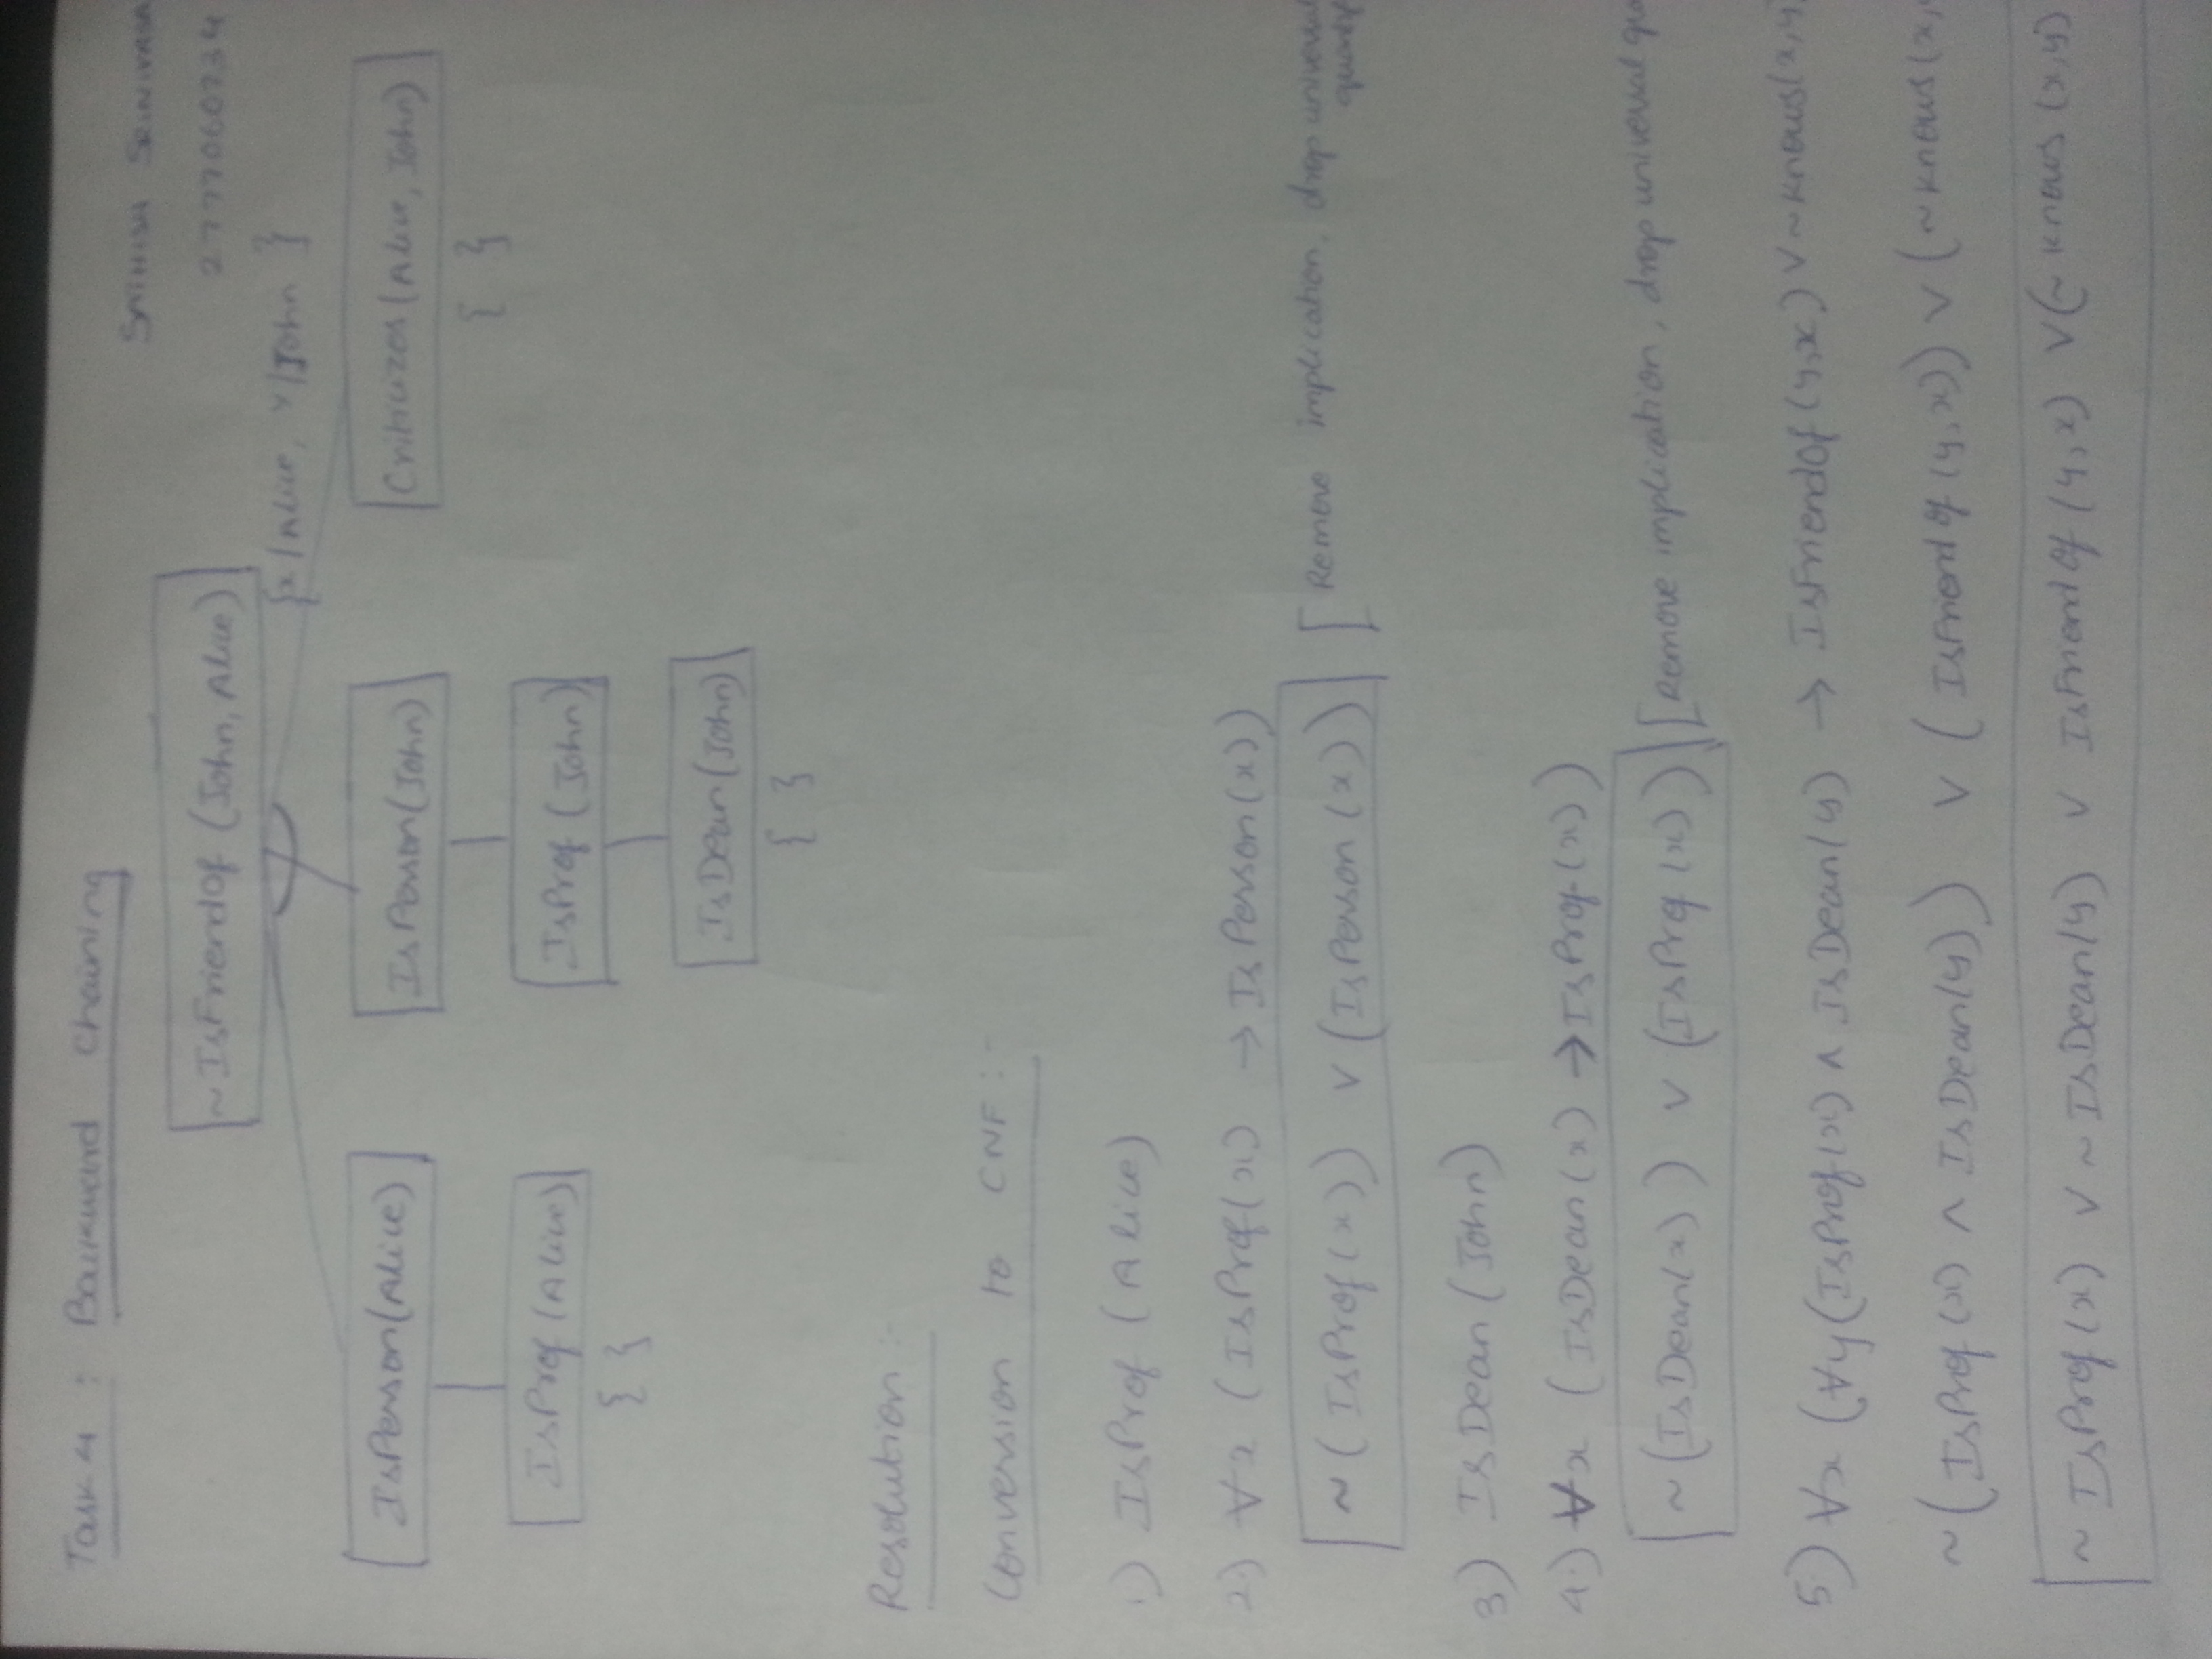 Task 4 : Backward Chaining
2777060734
~IsFriendOf (John, Alice)
{x/Alice, y/John }
IsPerson(Alice)
IsPerson(John)
Criticizes(Alice, John)
{ }
IsProf (Alice)
{ }
IsProf (John)
IsDean(John)
{ }
Resolution:-
Conversion to CNF:-
1) IsProf (Alice)
2.) ∀x (IsProf(x) → IsPerson(x))
~(IsProf(x)) ∨ (IsPerson(x)) [Remove implication, drop universal
3) IsDean (John)
4.) ∀x (IsDean(x) → IsProf(x))
~(IsDean(x)) ∨ (IsProf(x)) [Remove implication, drop universal
5.) ∀x (∀y (IsProf(x) ∧ IsDean(y) → IsFriendOf(y,x) ∨ ~knows(x,y)
~(IsProf(x) ∧ IsDean(y)) ∨ (IsFriendOf(y,x)) ∨ (~knows(x,
~IsProf(x) ∨ ~IsDean(y) ∨ IsFriendOf(y,x) ∨ (~knows(x,y)